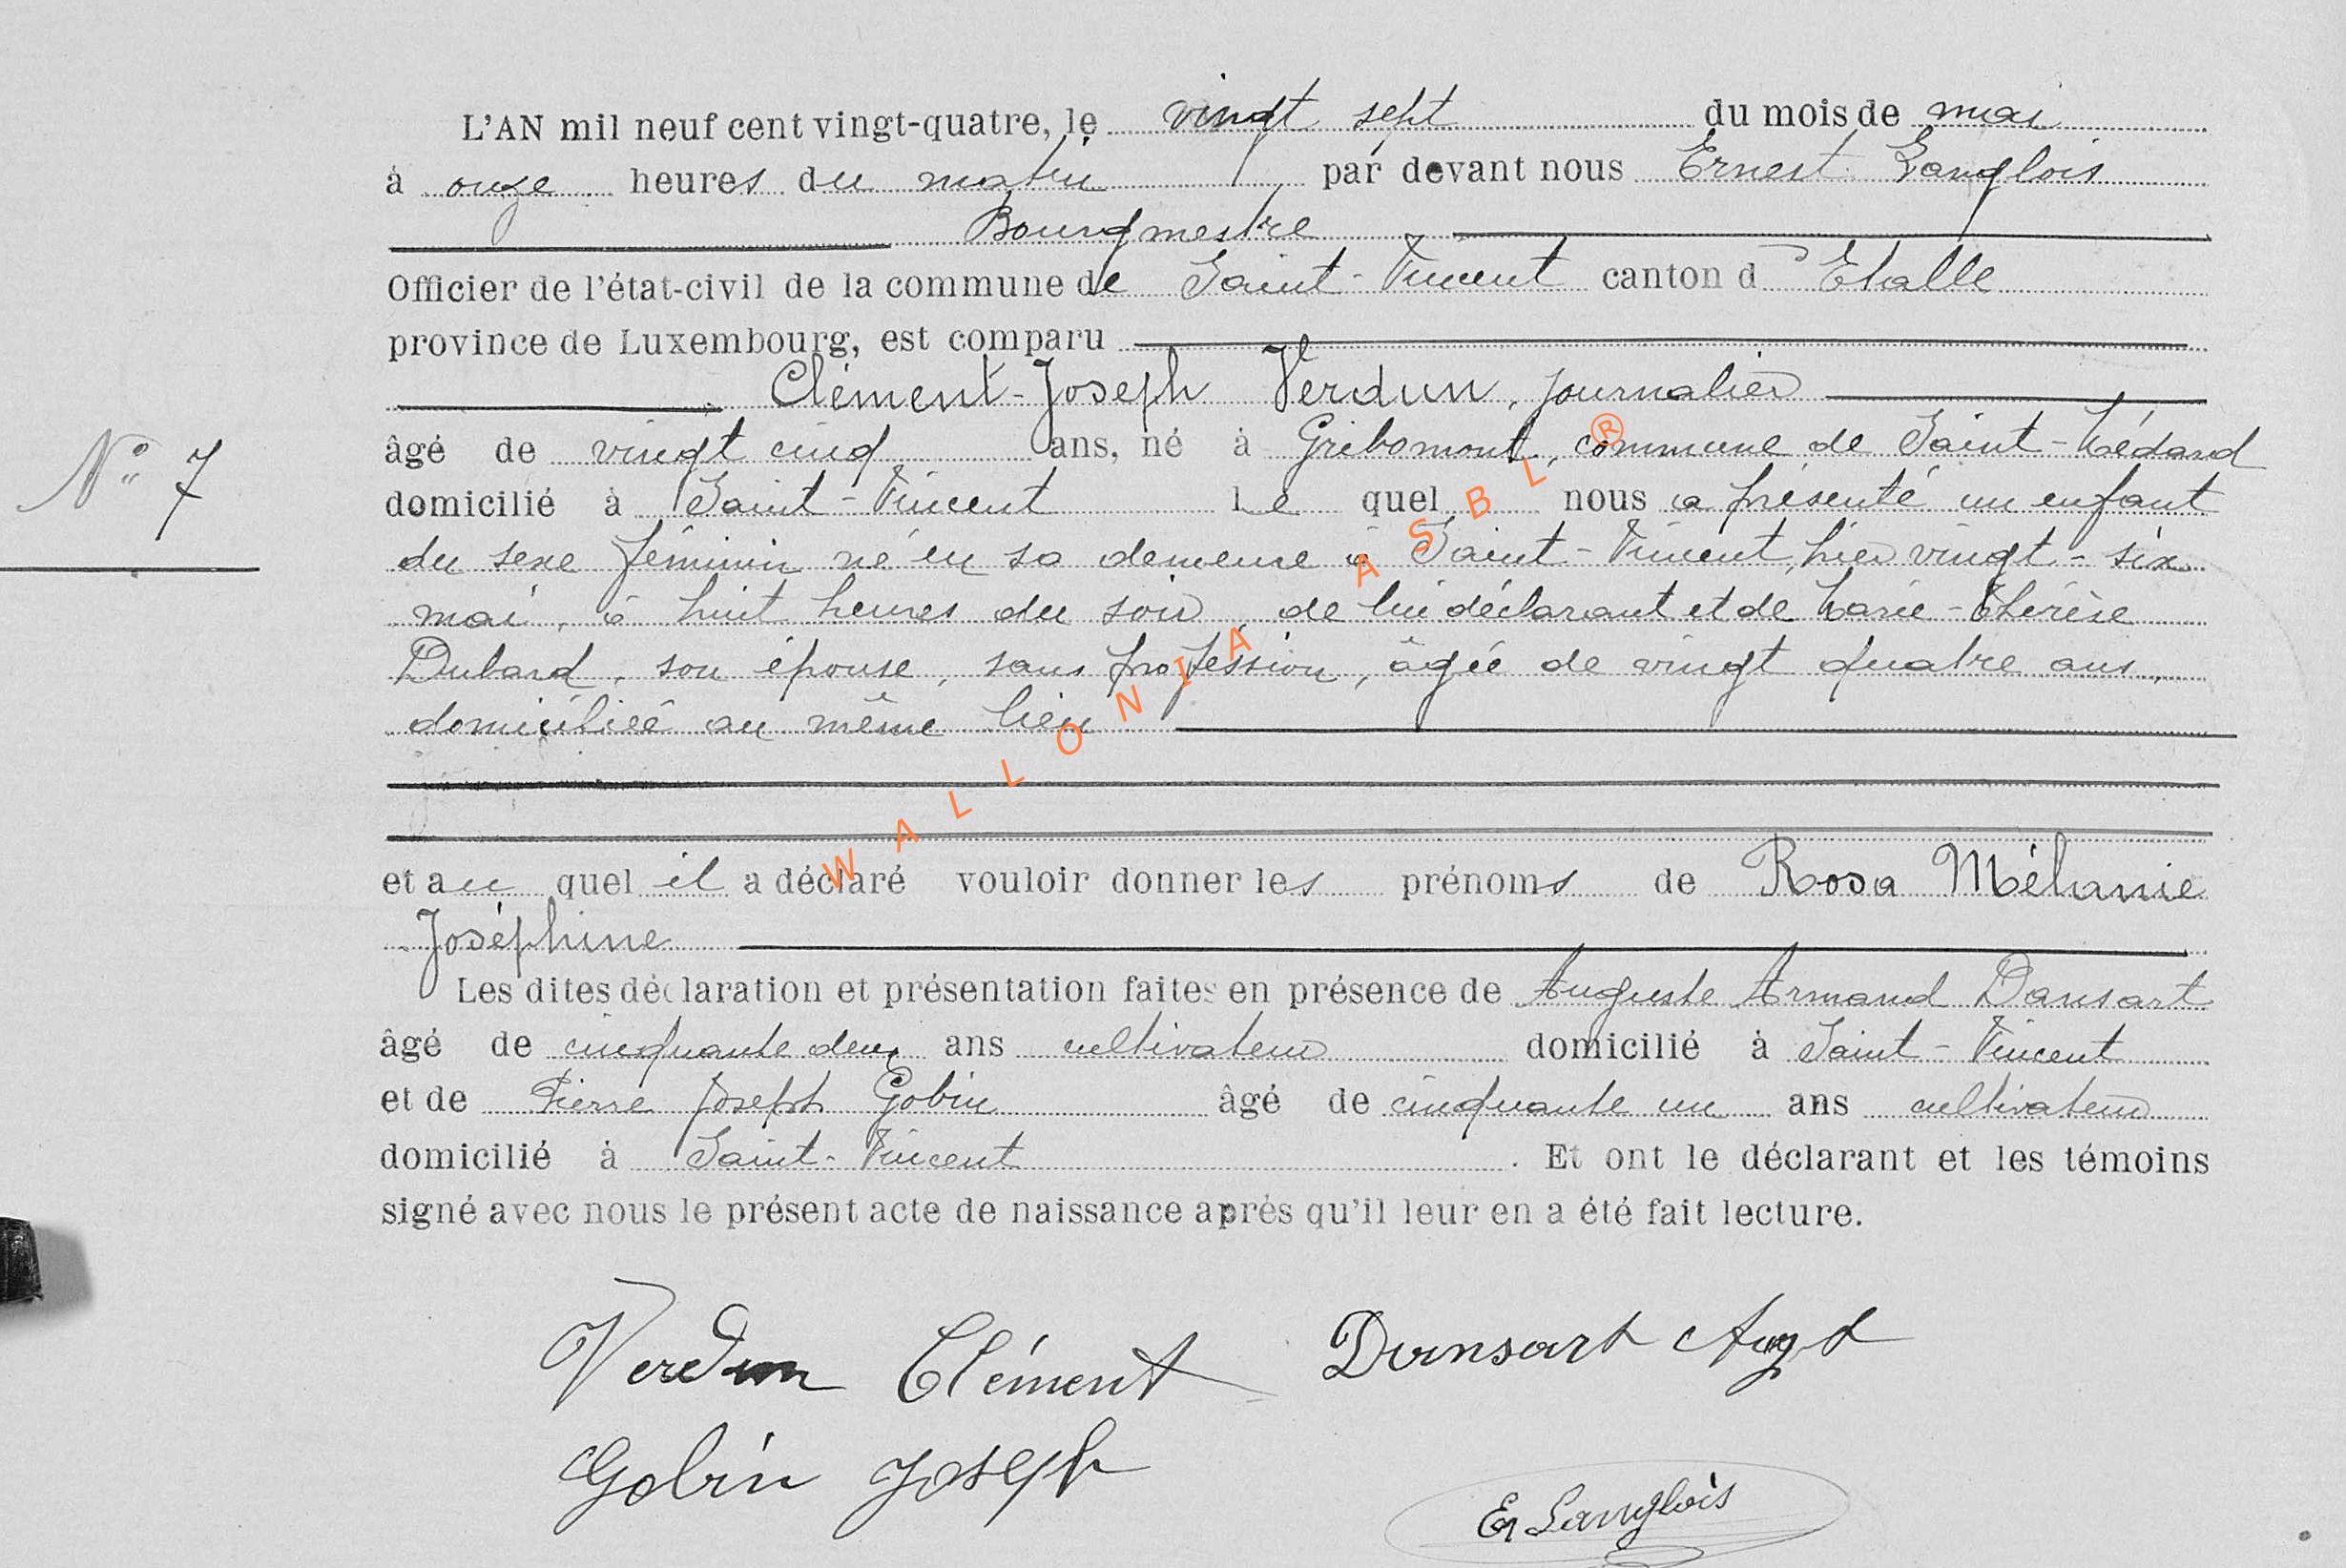 L'AN mil neuf cent vingt-quatre, le vingt sept du mois de mai
à onze heures du matin par devant nous Ernest Langlois
Bourgmestre
Officier de l'état-civil de la commune de Saint-Vincent canton d' Etalle
province de Luxembourg, est comparu
Clément-Joseph Verdun, journalier
N° 7
âgé de vingt cinq ans, né à Gribomont, commune de Saint-Médard
domicilié à Saint-Vincent le quel nous a présenté un enfant
du sexe féminin né en sa demeure à Saint-Vincent, hier vingt-six
mai, à huit heures du soir, de lui déclarant et de Marie-Thérèse
Dubard, son épouse, sans profession, âgée de vingt quatre ans,
domiciliée au même lieu
WALLONIA ASBL ®
et au quel il a déclaré vouloir donner les prénoms de Rosa Mélanie
Joséphine
Les dites déclaration et présentation faites en présence de Auguste Armand Dansart
âgé de cinquante deux ans cultivateur domicilié à Saint-Vincent
et de Pierre Joseph Gobin âgé de cinquante un ans cultivateur
domicilié à Saint-Vincent. Et ont le déclarant et les témoins
signé avec nous le présent acte de naissance après qu'il leur en a été fait lecture.
Verdun Clément Dansart Augt
Gobin Joseph
En Langlois